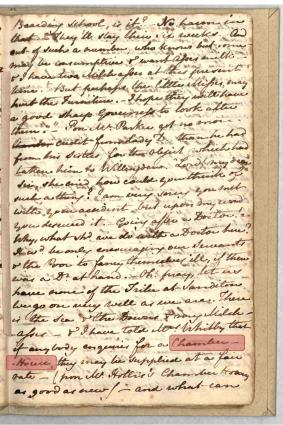 Boarding school, is it? No harm in
that. They'll stay their six weeks. And
out of such a number, who knows but some
may be consumptive & want Asses milk -
& I have two Milch asses at this present
time. - But perhaps the little Misses may
hurt the Furniture. - I hope they will have
a good sharp Governess to look after
them. - Poor Mr. Parker got no more
credit from Lady D. than he had
from his Sisters, for the object which had
taken him to Willingden. Lord! my dear
Sir, she cried, how could you think of
such a thing? I am very sorry you met
with your accident, but upon my word
you deserved it. - Going after a Doctor! -
Why, what shd. we do with a Doctor here?
It wd. be only encouraging our Servants
& the Poor to fancy themselves ill, if there
was a Dr. at hand. - Oh! pray, let us
have none of the Tribe at Sanditon.
We go on very well as we are. There
is the Sea & the Downs & my Milch-
asses - & I have told Mrs. Whitby that
if any body enquire for a Chamber-
Horse, they may be supplied at a fair
rate - (poor Mr. Hollis's Chamber-Horse,
as good as new) - and what can